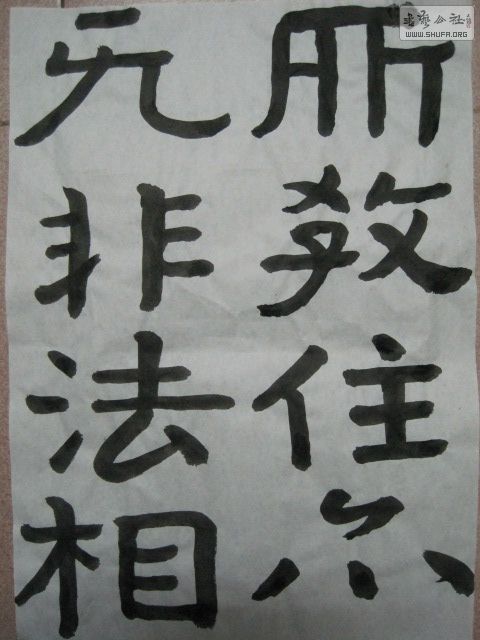 所教住亦
无非法相
书法公社
WWW.SHUFA.ORG